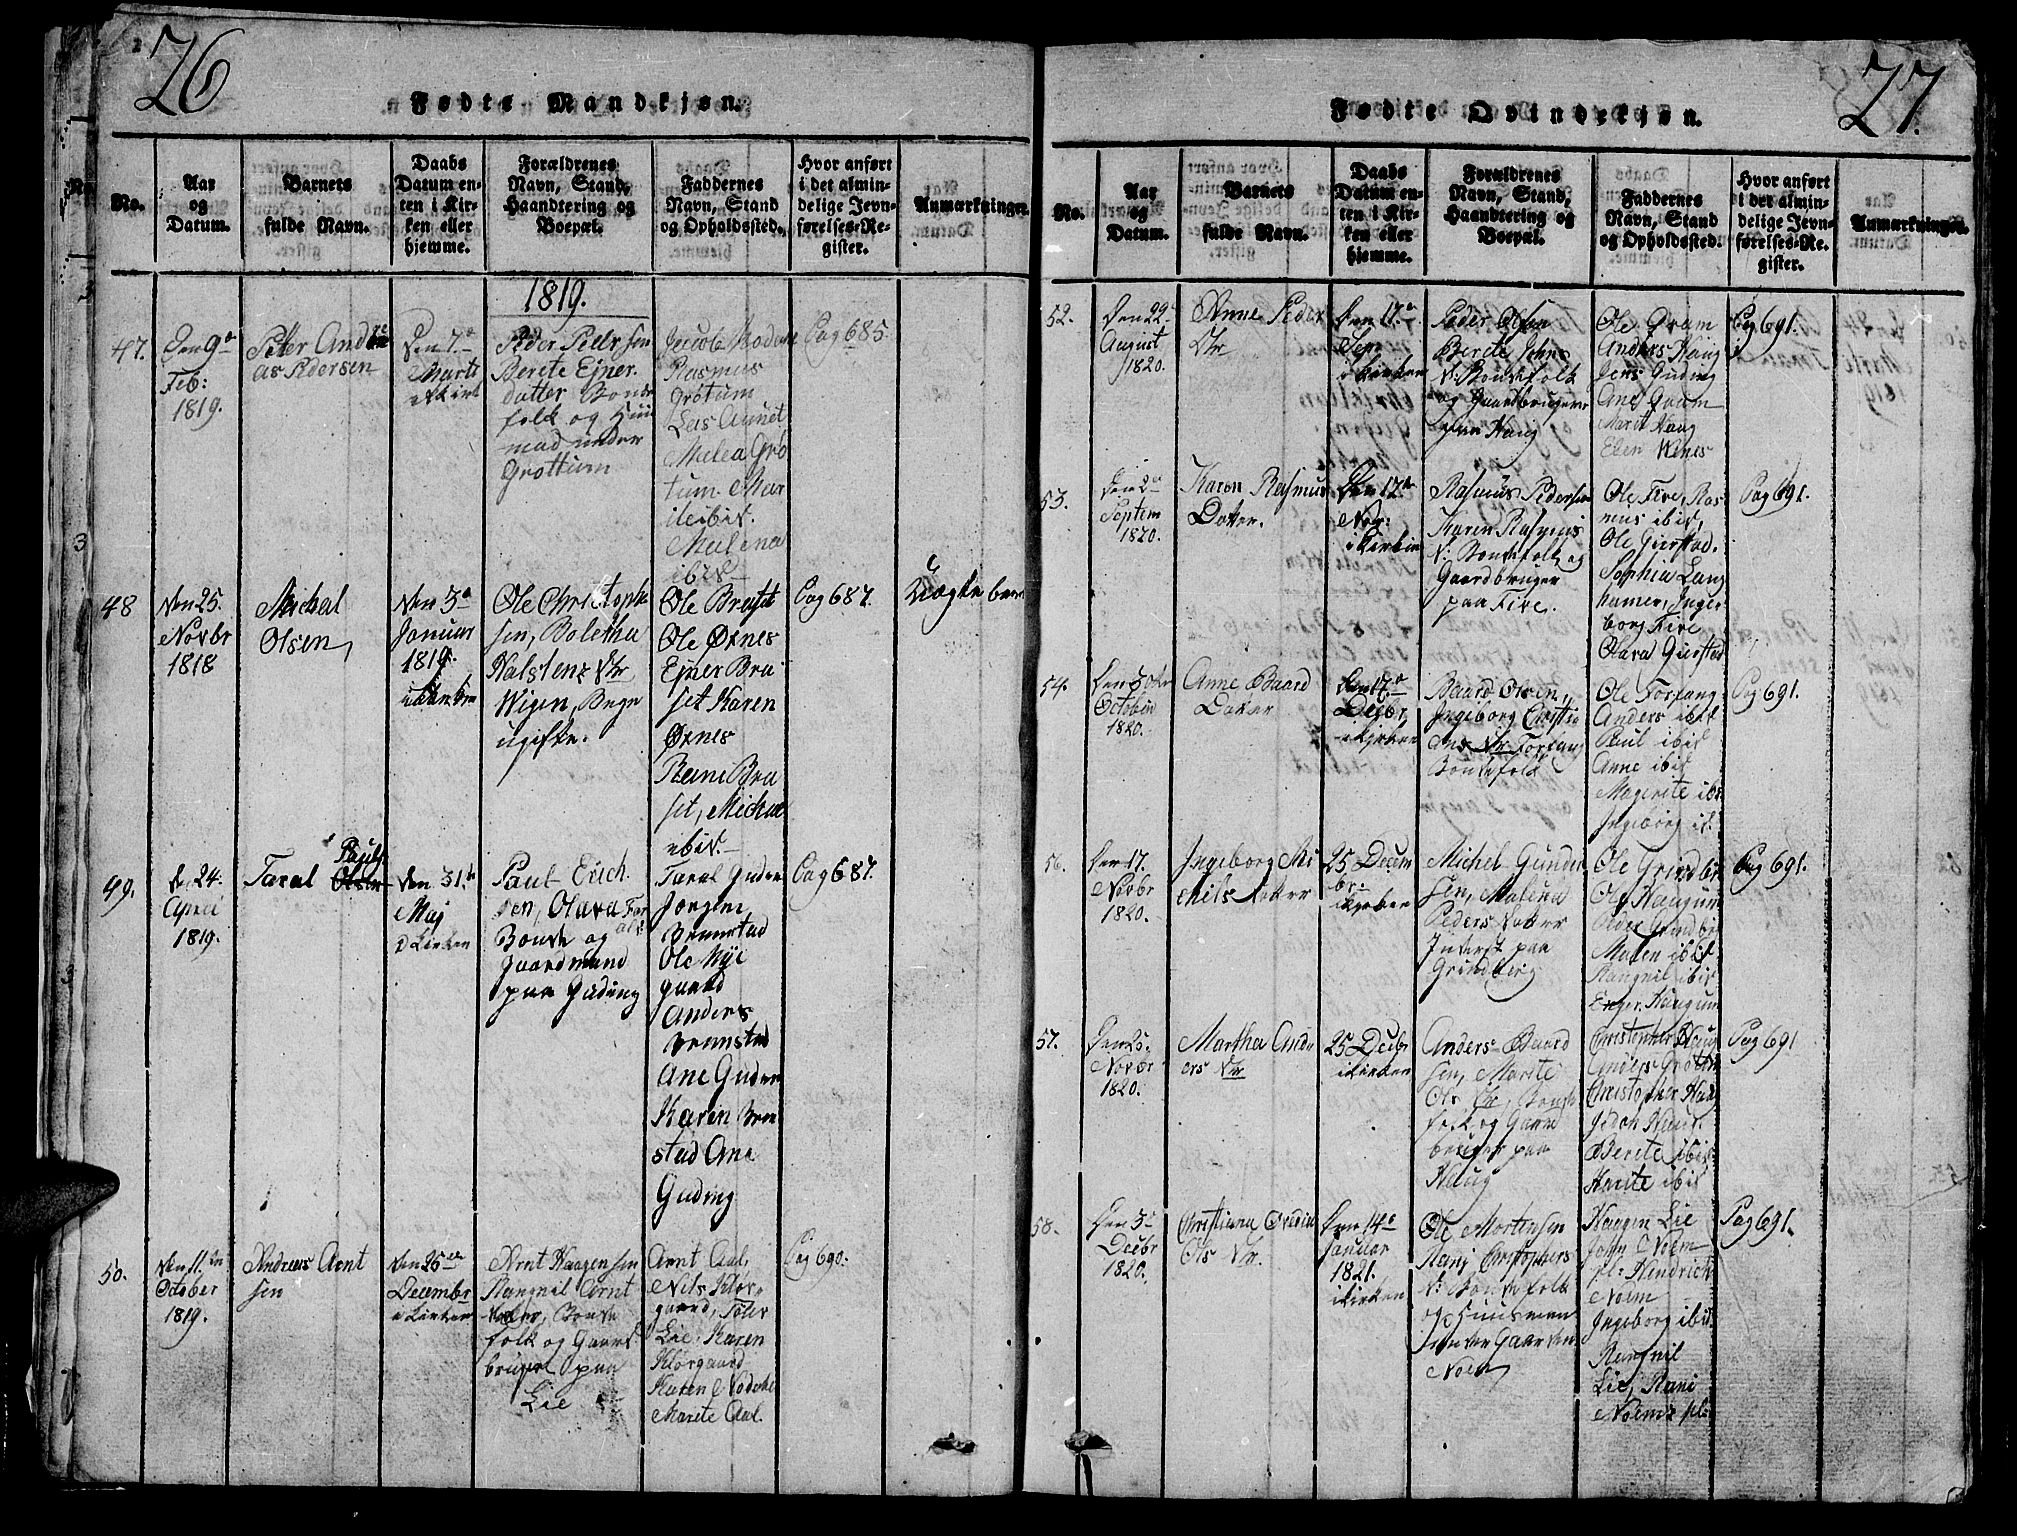 26
Fødte Mandkjøn.
No.
Aar
og
Datum.
Barnets
fulde Navn.
Daabs
Datum en-
ten i Kir-
ken eller
hjemme.
Forældrenes
Navn, Stand,
Haandtering og
Boepæl.
Faddernes
Navn, Stand
og Opholdssted.
Hvor anført
i det almin-
delige Jevn-
førelses-Re-
gister.
Anmærkninger.
1819.
47.
Den 9de
Feb:
1819.
Peter Andre
as Pedersen
Den 7de
Marts
i Kirk
Peder Peders sen
Berete Ejner
datter Bonde
folk og Huus
mad under
Grottum
Jacob
Rasmus
Grotum
Lars Aunet
Malea Gro
tum Mar
ibid.
Malena
ibid
Pag 685.
48
Den 25.
Novbr
1818
Michal
Olsen
Den 3de
Januar
1819.
Ole Christoph
sen, Boletha
Halstens Dtr
Wigen, Begge
ugifte.
Ole Brasit
Ole Øxnes
Ejner Bra
sit Karen
Øxnes
Rane Bra
sit, Michal
ibid.
Pag 687.
Uægte barn
49.
den 24.
April
1819.
Taral Pauls
Olsen
Den 31.te
Maj
i Kirken
Paul Erich
sen, Olava
Bonde og
Gaardmand
paa Guding
Taral Guden
Jørgen
Bremstad
Ole Nye
gaard
Anders
Bremstad
Ane Guden
Karen Brem
stad Ane
Guding
Pag 687.
50.
Den 11.te
October
1819.
Andreas Arnt
sen
Den 26de
Decembr
i Kirken
Arnt Haagensen
Rangnil Arnt
Bonde
folk og Gaard
bruger paa
Lie
Arnt Aal,
Nils Klør
gaard, Peter
Lie, Karen
Klørgaard
Karen
Marete Aal.
Pag 690.
27.
Fødte Qvindekjøn.
No.
Aar
og
Datum.
Barnets
fulde Navn.
Daabs
Datum en-
ten i Kir-
ken eller
hjemme.
Forældrenes
Navn, Stand,
Haandtering og
Boepæl.
Faddernes
Navn, Stand
og Opholdssted.
Hvor anført
i det almin-
delige Jevn-
førelses-Re-
gister.
Anmærkninger.
52.
Den 22.
August
1820.
Anne Peder
Dtr
Den 17.de
Sep.
i kirken
Peder Olsen
Berete Johns
D: Bondefolk
og Gaardbruger
paa Haug
Ole Gram
Anders Haug
Jens Guding
Ane Gram
Marit Haug
Elen Wines
Pag 691.
53.
Den 2de
Septem
1820.
Karen Rasmus
Datter.
Den 12te
Nov:
i Kirken
Rasmus Pedersen
Karen Rasmus
D: Bondefolk og
Gaardbruger
paa Five.
Ole Five, Ras
mus ibid,
Ole Gierstad.
Sophia Lang
hamer, Inger
borg Five
Olava Gierstad
Pag 691.
54.
Den 30te
October
1820.
Anne Baard
Datter
Den 17.de
Decbr,
i Kirken
Baard Olsen,
Ingeborg Christi
ans Dtr Forfang
Bondefolk
Ole Forfang
Anders ibid
Paul ibid
Anne ibid
Magerite ibd
Ingeborg ib.
Pag 691.
56.
Den 17.
Novbr
1820.
Ingeborg Mi
chils datter
25 Decem
br.
Michel Gunder
sen, Malena
Peders Datter
Inderst paa
Grindberg
Ole Grindbr
Ole Haugum
Peder Grindbr
Malen ibid
Rangnil ibid
Enger Haugum
Pag 691.
57.
Den 25.
Novbr
1820.
Martha And
ers Dtr
25 Decbr
i Kirken
Anders Baard
sen, Marite
Ols Dr, Bonde
folk og Gaard
bruger paa
Haug
Christopher Haug
Anders Grottm
Christopher Haug
Berete ibid
Marite ibid
Pag 691
58.
Den 3de
Decbr
1820.
Christiana
Ols Dtr.
Den 14de
Januar
1821.
i Kirken
Ole Mortensen
Christophers
D: Bondefolk
og Huusmand
under Gaarden
Noem
Haagen Lie
John Noem
pl: Hendrich
Noem
Ingeborg ibid.
Rangnil
Lie, Rani
Noems pl:
Pag 691.